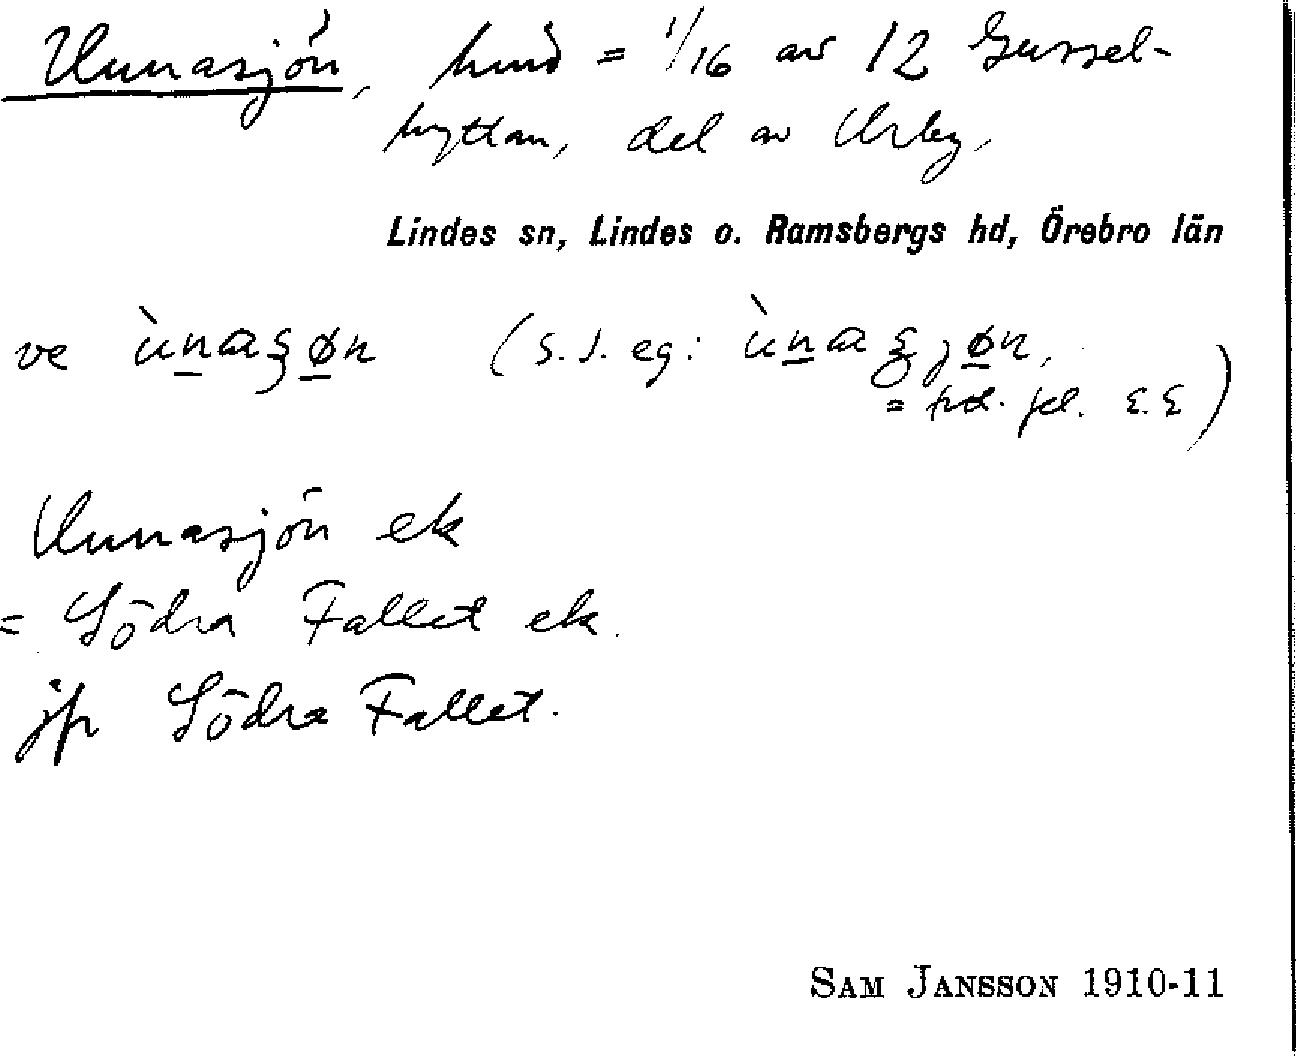 Unnasjön, hmd = 1/16 av 12 Gussel-
hyttan, del av Urby,
Lindes sn, Lindes o. Ramsbergs hd, Örebro län
ve ùnaʂøn (s. J. eg: ùnaʂȷøn,
= trol. fel. E.E)
Unnasjön ek
= Södra Fallet ek.
jfr Södra Fallet.
SAM JANSSON 1910-11